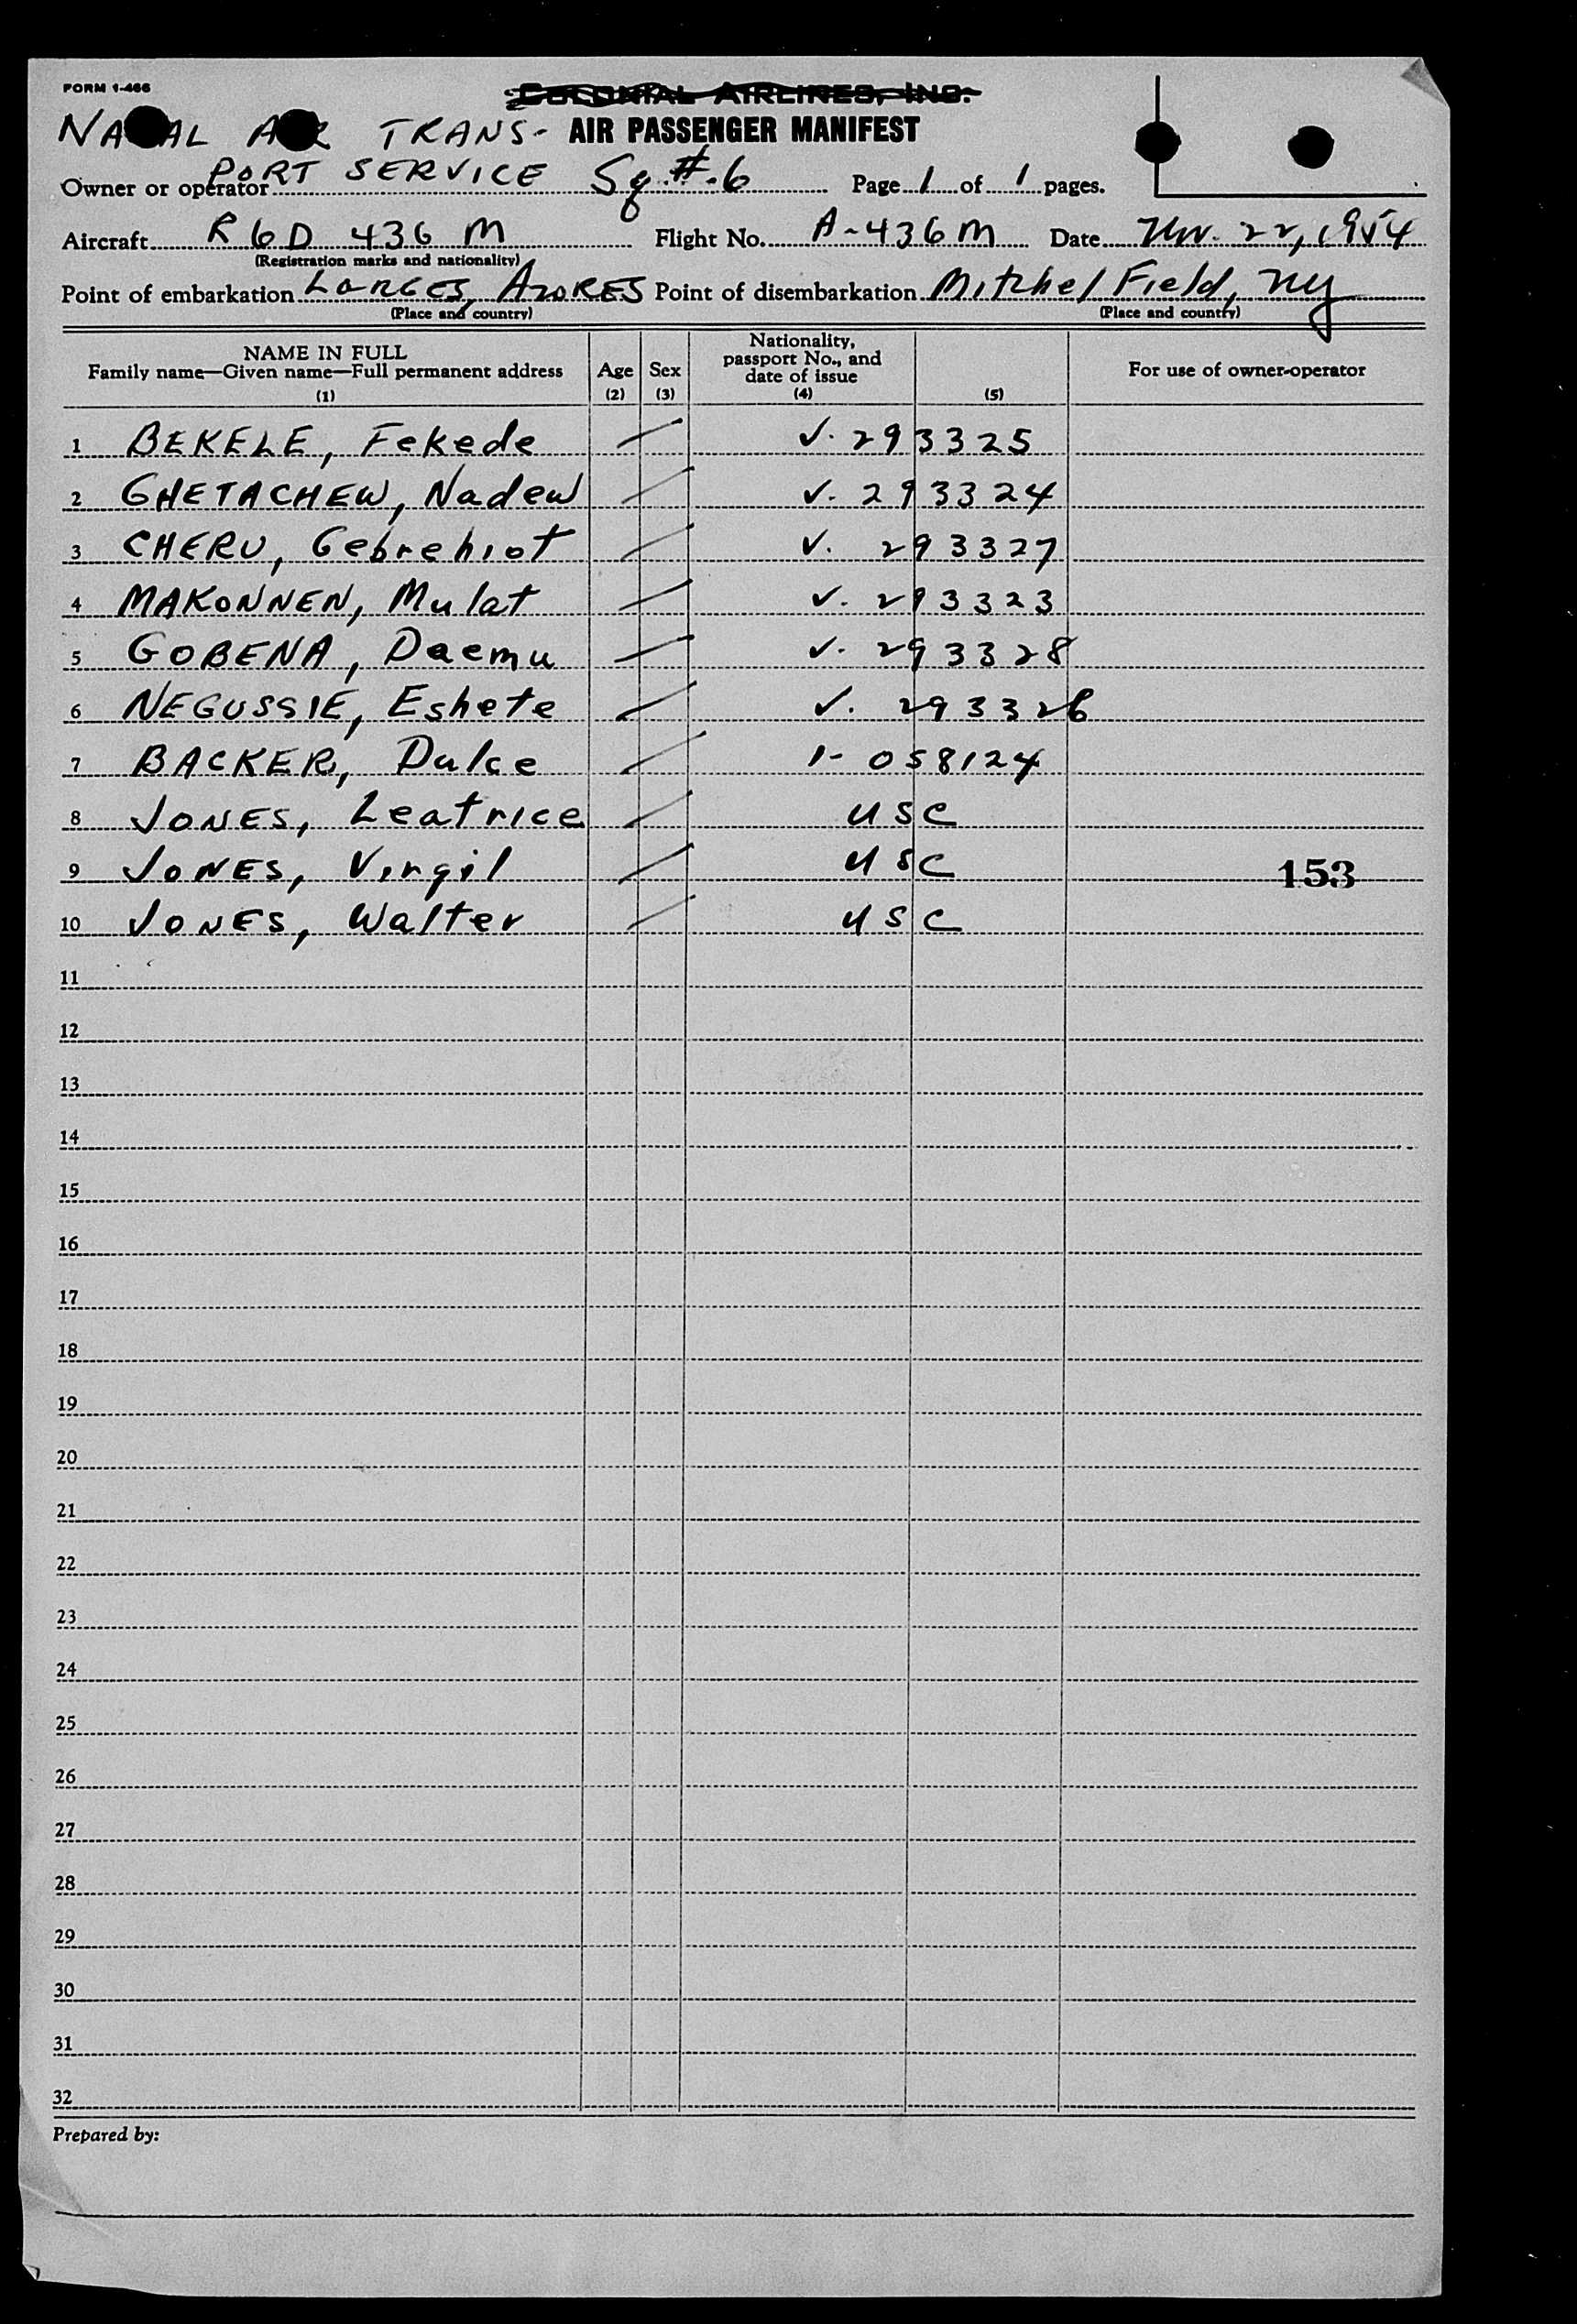 FORM 1-466
COLONIAL AIRLINES, INC.
NAVAL AIR TRANS- AIR PASSENGER MANIFEST
PORT SERVICE Sq. #.6
Owner or operator Page 1 of 1 pages.
Aircraft R6D 436 M Flight No. A-436M Date Nov. 22, 1954
(Registration marks and nationality)
Point of embarkation LARGES, AZORES Point of disembarkation Mitchel Field, NY
(Place and country) (Place and country)
NAME IN FULL
Family name—Given name—Full permanent address
(1)
Age
(2)
Sex
(3)
Nationality,
passport No., and
date of issue
(4)
(5)
For use of owner-operator
1 BEKELE, Fekede V. 293325
2 GHETACHEW, Nadew V. 293324
3 CHERU, Gebrehiot V. 293327
4 MAKONNEN, Mulat V. 293323
5 GOBENA, Daemu V. 293328
6 NEGUSSIE, Eshete V. 293326
7 BACKER, Dulce 1- 058124
8 JONES, Leatrice USC
9 JONES, Virgil USC 153
10 JONES, Walter USC
11
12
13
14
15
16
17
18
19
20
21
22
23
24
25
26
27
28
29
30
31
32
Prepared by: